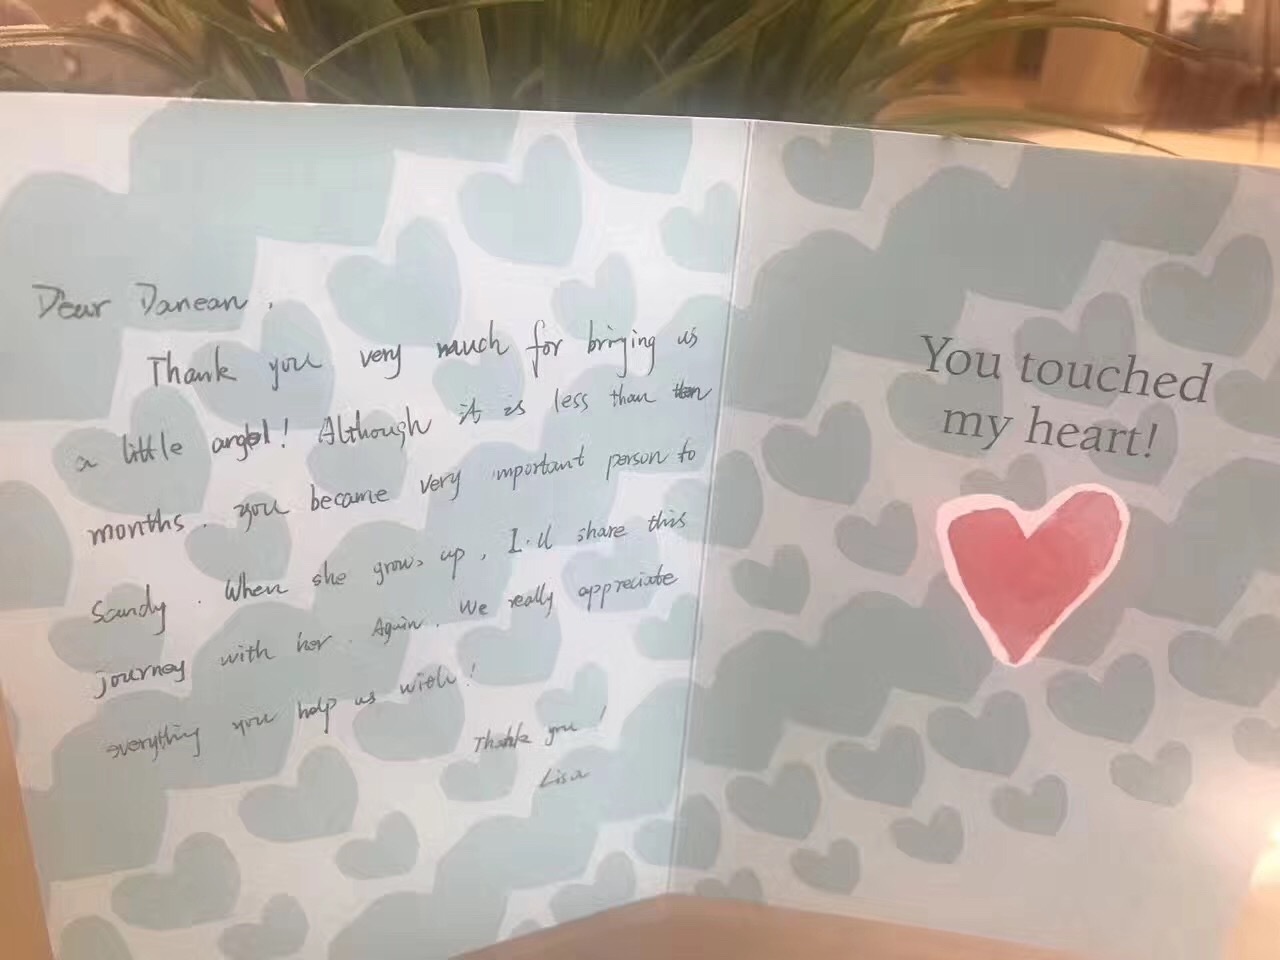 Dear Danean,
Thank you very much for bringing us
a little angel! Although it is less than ten
months. you became very important person to
Sandy. When she grows up, I'll share this
journey with her. Again. We really appreciate
everything you help us with!
Thank you!
Lisa
You touched
my heart!